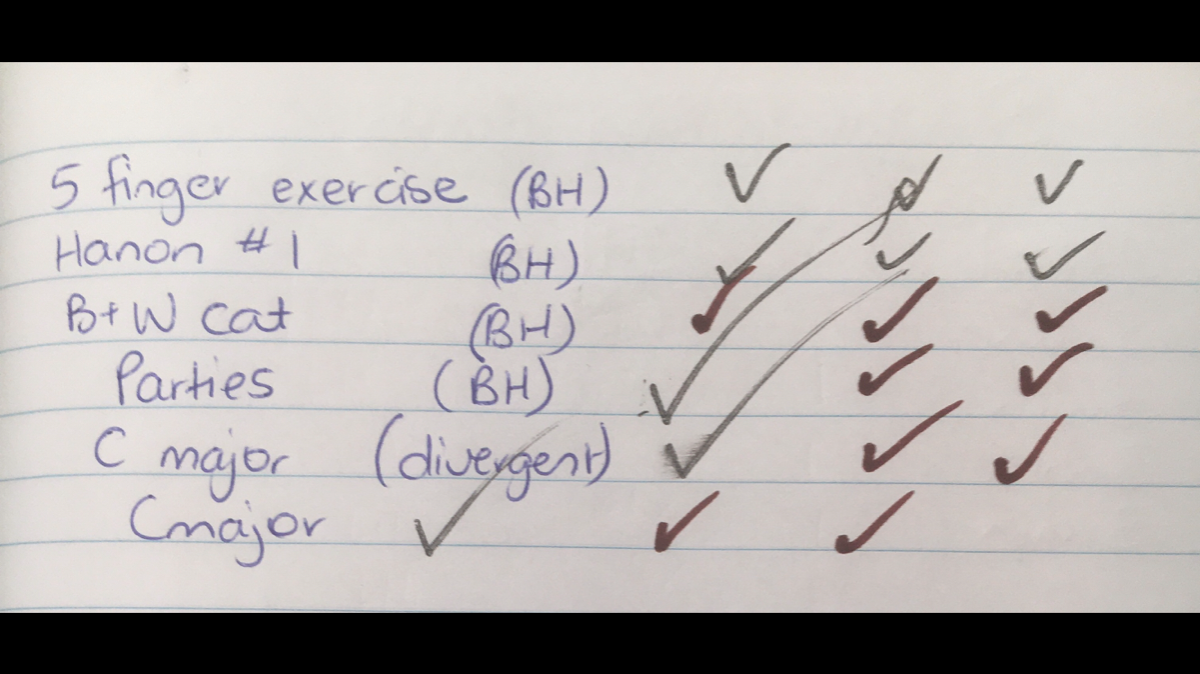 5 finger exercise (BH) ✓ ✓ ✓
Hanon #1 (BH) ✓ ✓ ✓
B+W cat (BH) ✓ ✓ ✓
Parties (BH) ✓ ✓ ✓
C major (divergent) ✓ ✓ ✓
C major ✓ ✓ ✓